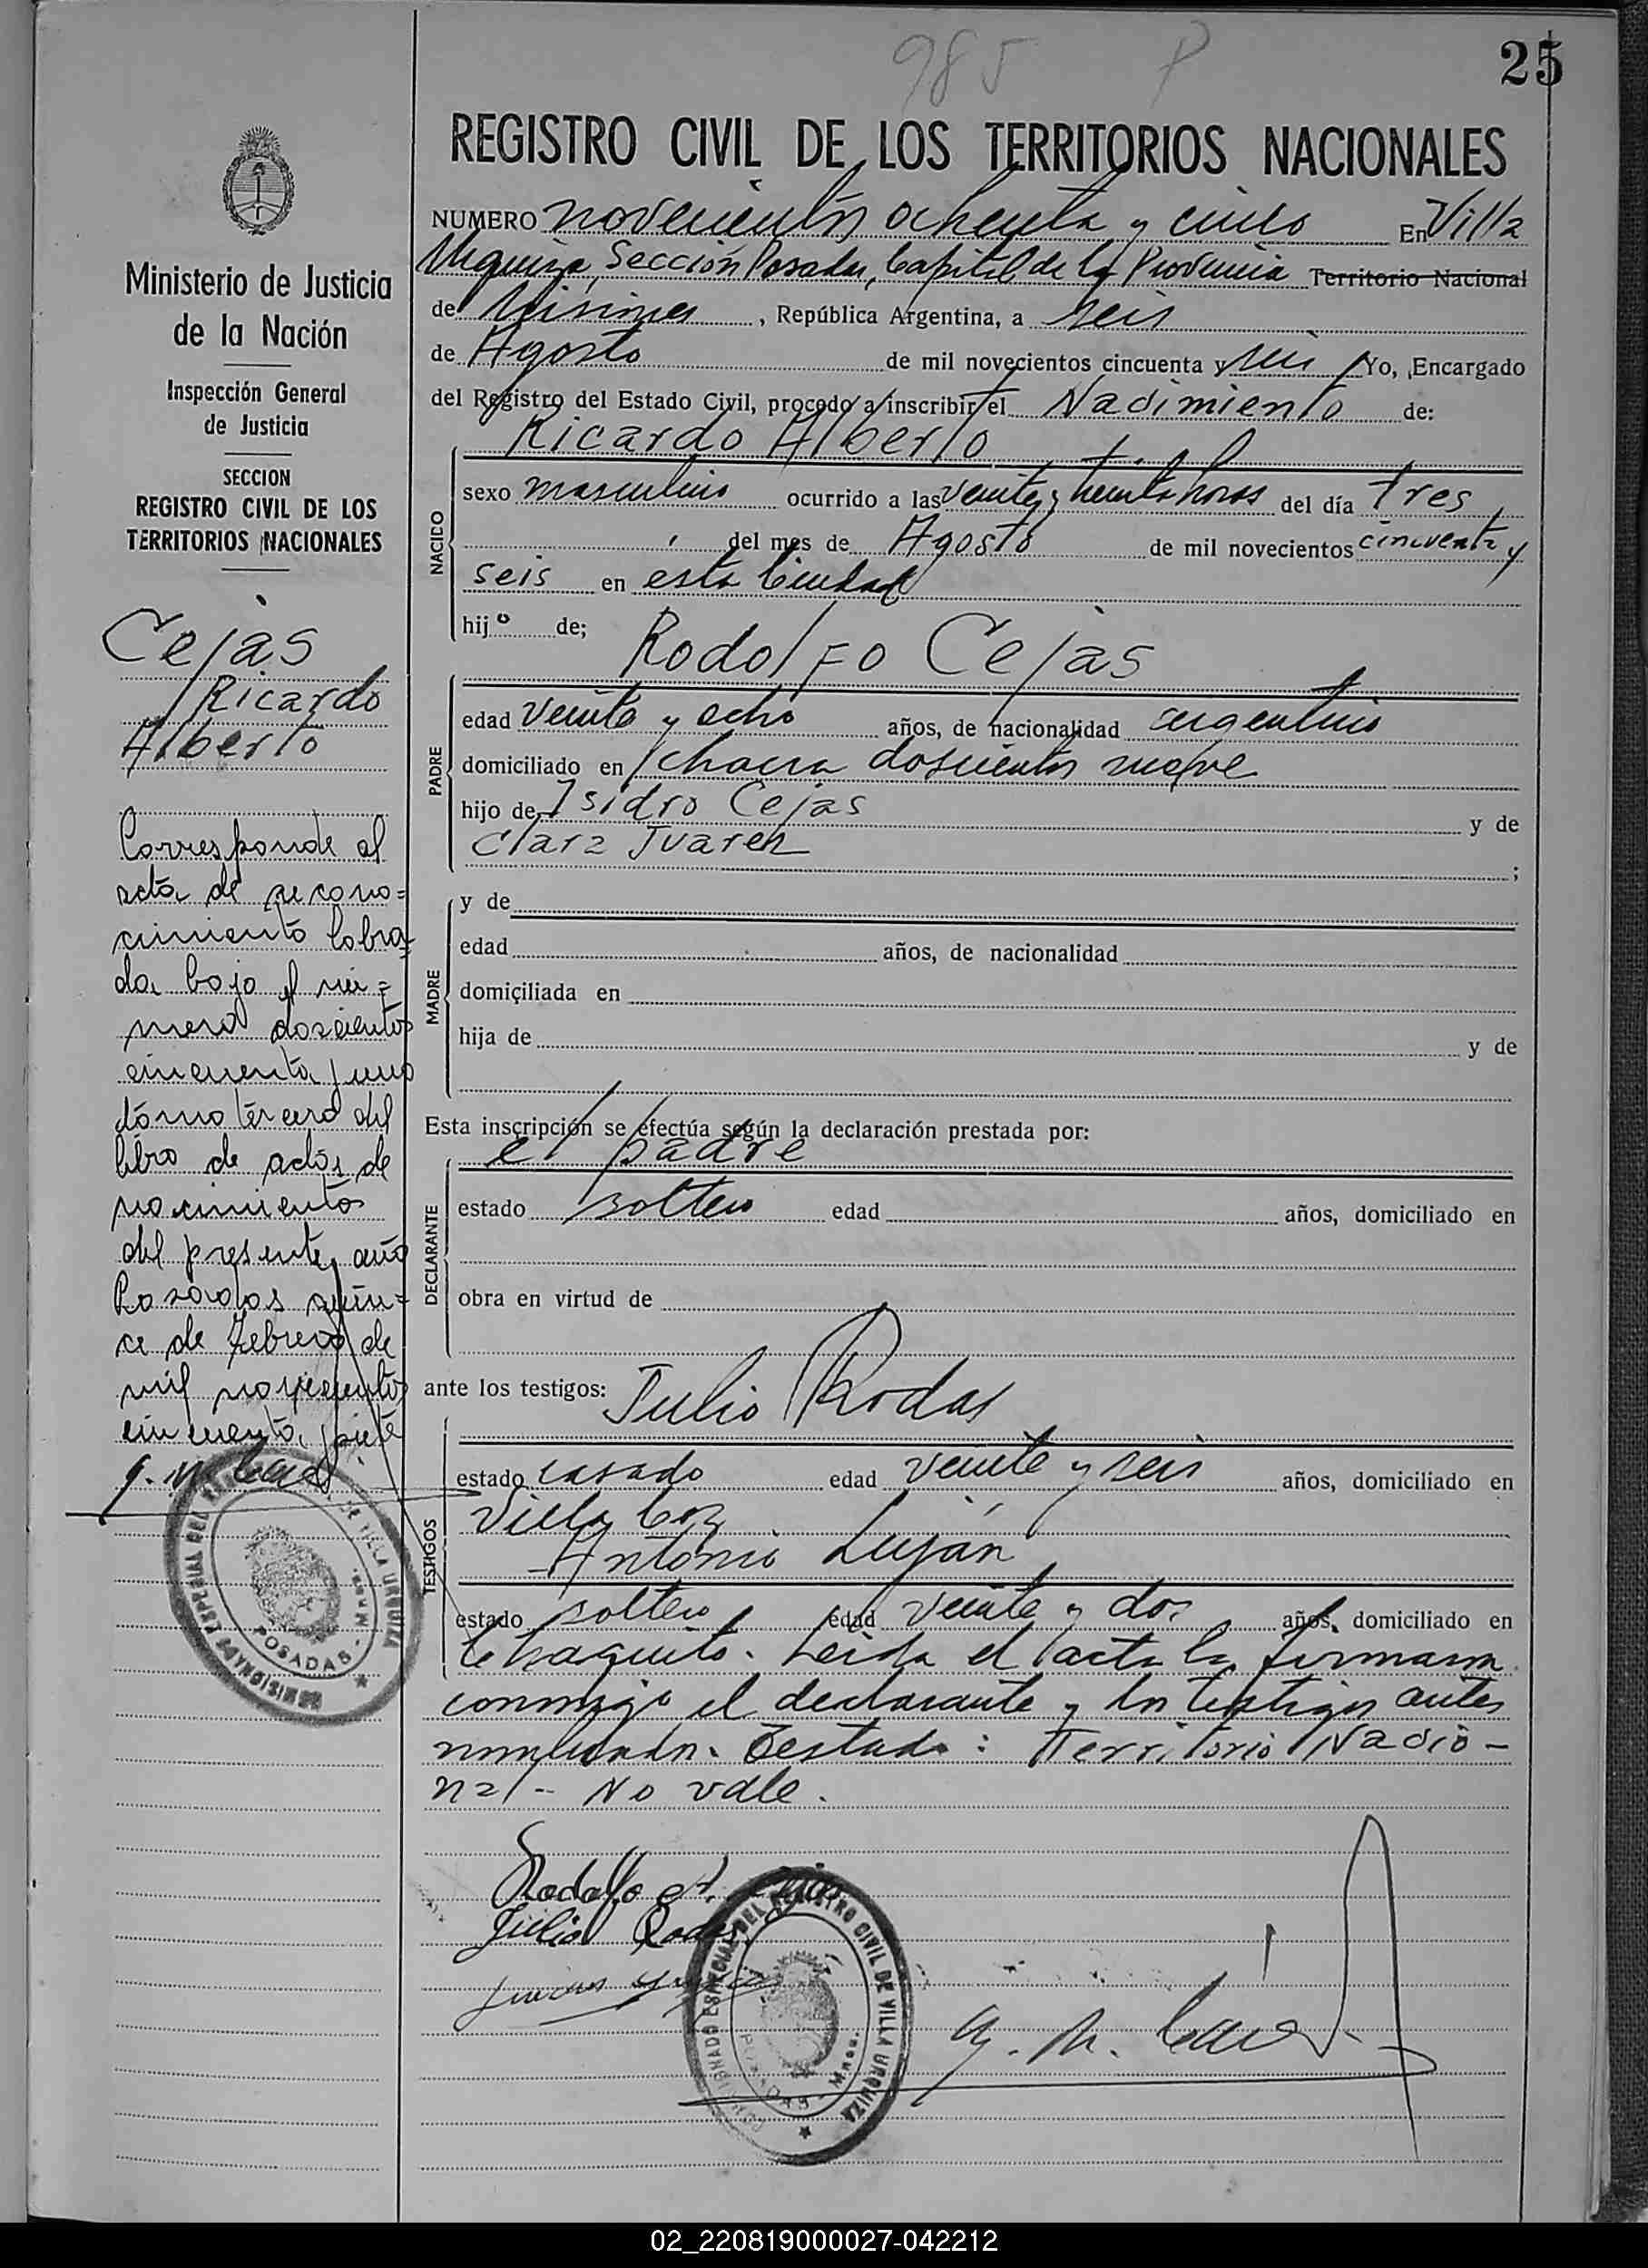 985 P
25
REGISTRO CIVIL DE LOS TERRITORIOS NACIONALES
NUMERO novecientos ochenta y cinco En Villa
Urquiza, Sección Posadas, Capital de la Provincia Territorio Nacional
de Misiones, República Argentina, a seis
de Agosto de mil novecientos cincuenta y seis Yo, Encargado
del Registro del Estado Civil, procedo a inscribir el Nacimiento de:
Ricardo Alberto
NACIDO
sexo masculino ocurrido a las veinte y treinta horas del día tres
del mes de Agosto de mil novecientos cincuenta y
seis en esta Ciudad
hijo de;
Rodolfo Cejas
PADRE
edad veinte y ocho años, de nacionalidad argentino
domiciliado en chacra doscientos nueve
hijo de Isidro Cejas y de
Clara Juarez ;
MADRE
y de
edad años, de nacionalidad
domiciliada en
hija de y de
Esta inscripción se efectúa según la declaración prestada por:
el padre
DECLARANTE
estado soltero edad años, domiciliado en
obra en virtud de
ante los testigos: Julio Rodas
TESTIGOS
estado casado edad veinte y seis años, domiciliado en
Villa
Antonio Luján
estado soltero edad veinte y dos años, domiciliado en
Chaquito. Leida el acta la firmaron
conmigo el declarante y los testigos antes
nombrados. Testado: Territorio Nacio-
nal - No vale.
Rodolfo
Julio Rodas
REGISTRO CIVIL DE VILLA URQUIZA
POSADAS - Mnes.
Ministerio de Justicia
de la Nación
Inspección General
de Justicia
SECCION
REGISTRO CIVIL DE LOS
TERRITORIOS NACIONALES
Cejas
Ricardo
Alberto
Corresponde al
acta de recono=
cimiento labra=
da bajo el nú=
mero doscientos
cincuenta y uno
tomo tercero del
libro de actos de
nacimientos
del presente año
Posadas quin=
ce de Febrero de
mil novecientos
cincuenta y siete
DE VILLA URQUIZA
POSADAS - Mnes.
02_220819000027-042212